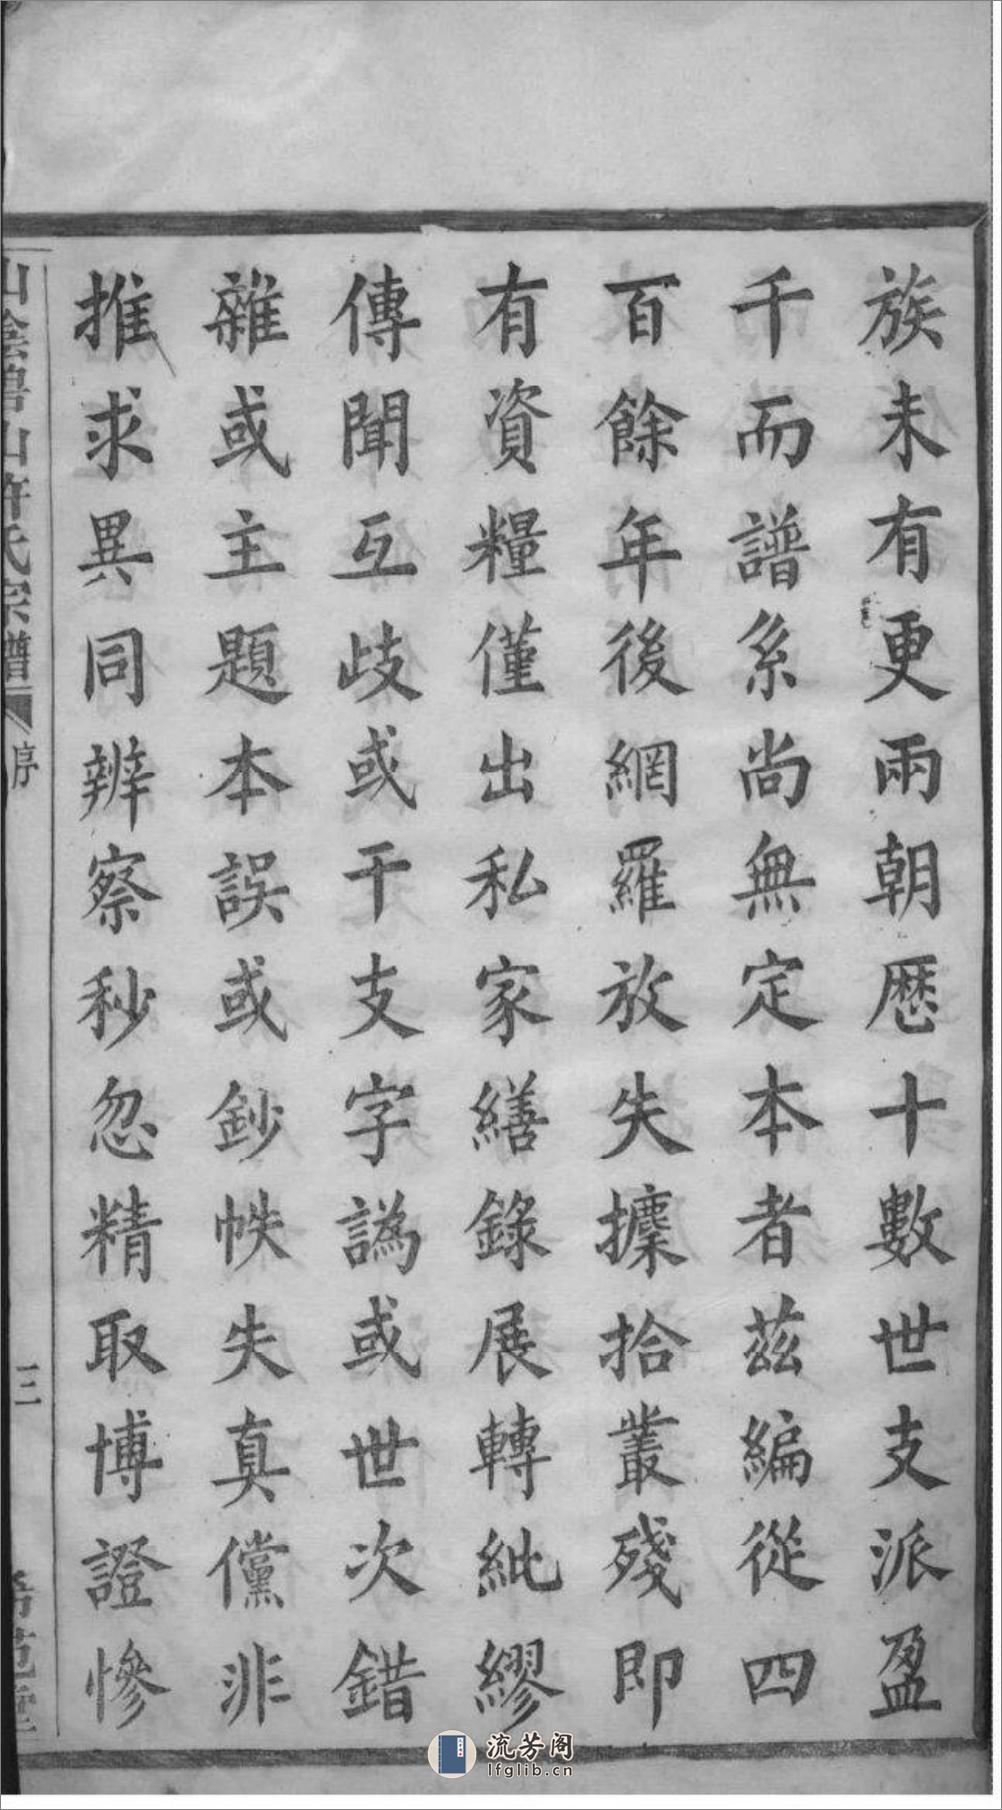 族未有更兩朝歴十數世支派盈
千而譜系尚無定本者茲編從四
百餘年後網羅放失攈拾叢殘即
有資糧僅出私家繕錄展轉紕繆
傳聞互歧或干支字譌或世次錯
雜或主題本誤或鈔帙失真儻非
推求異同辨察秒忽精取博證慘
山陰碧山許氏宗譜
序
三
流芳阁
lfglib.cn